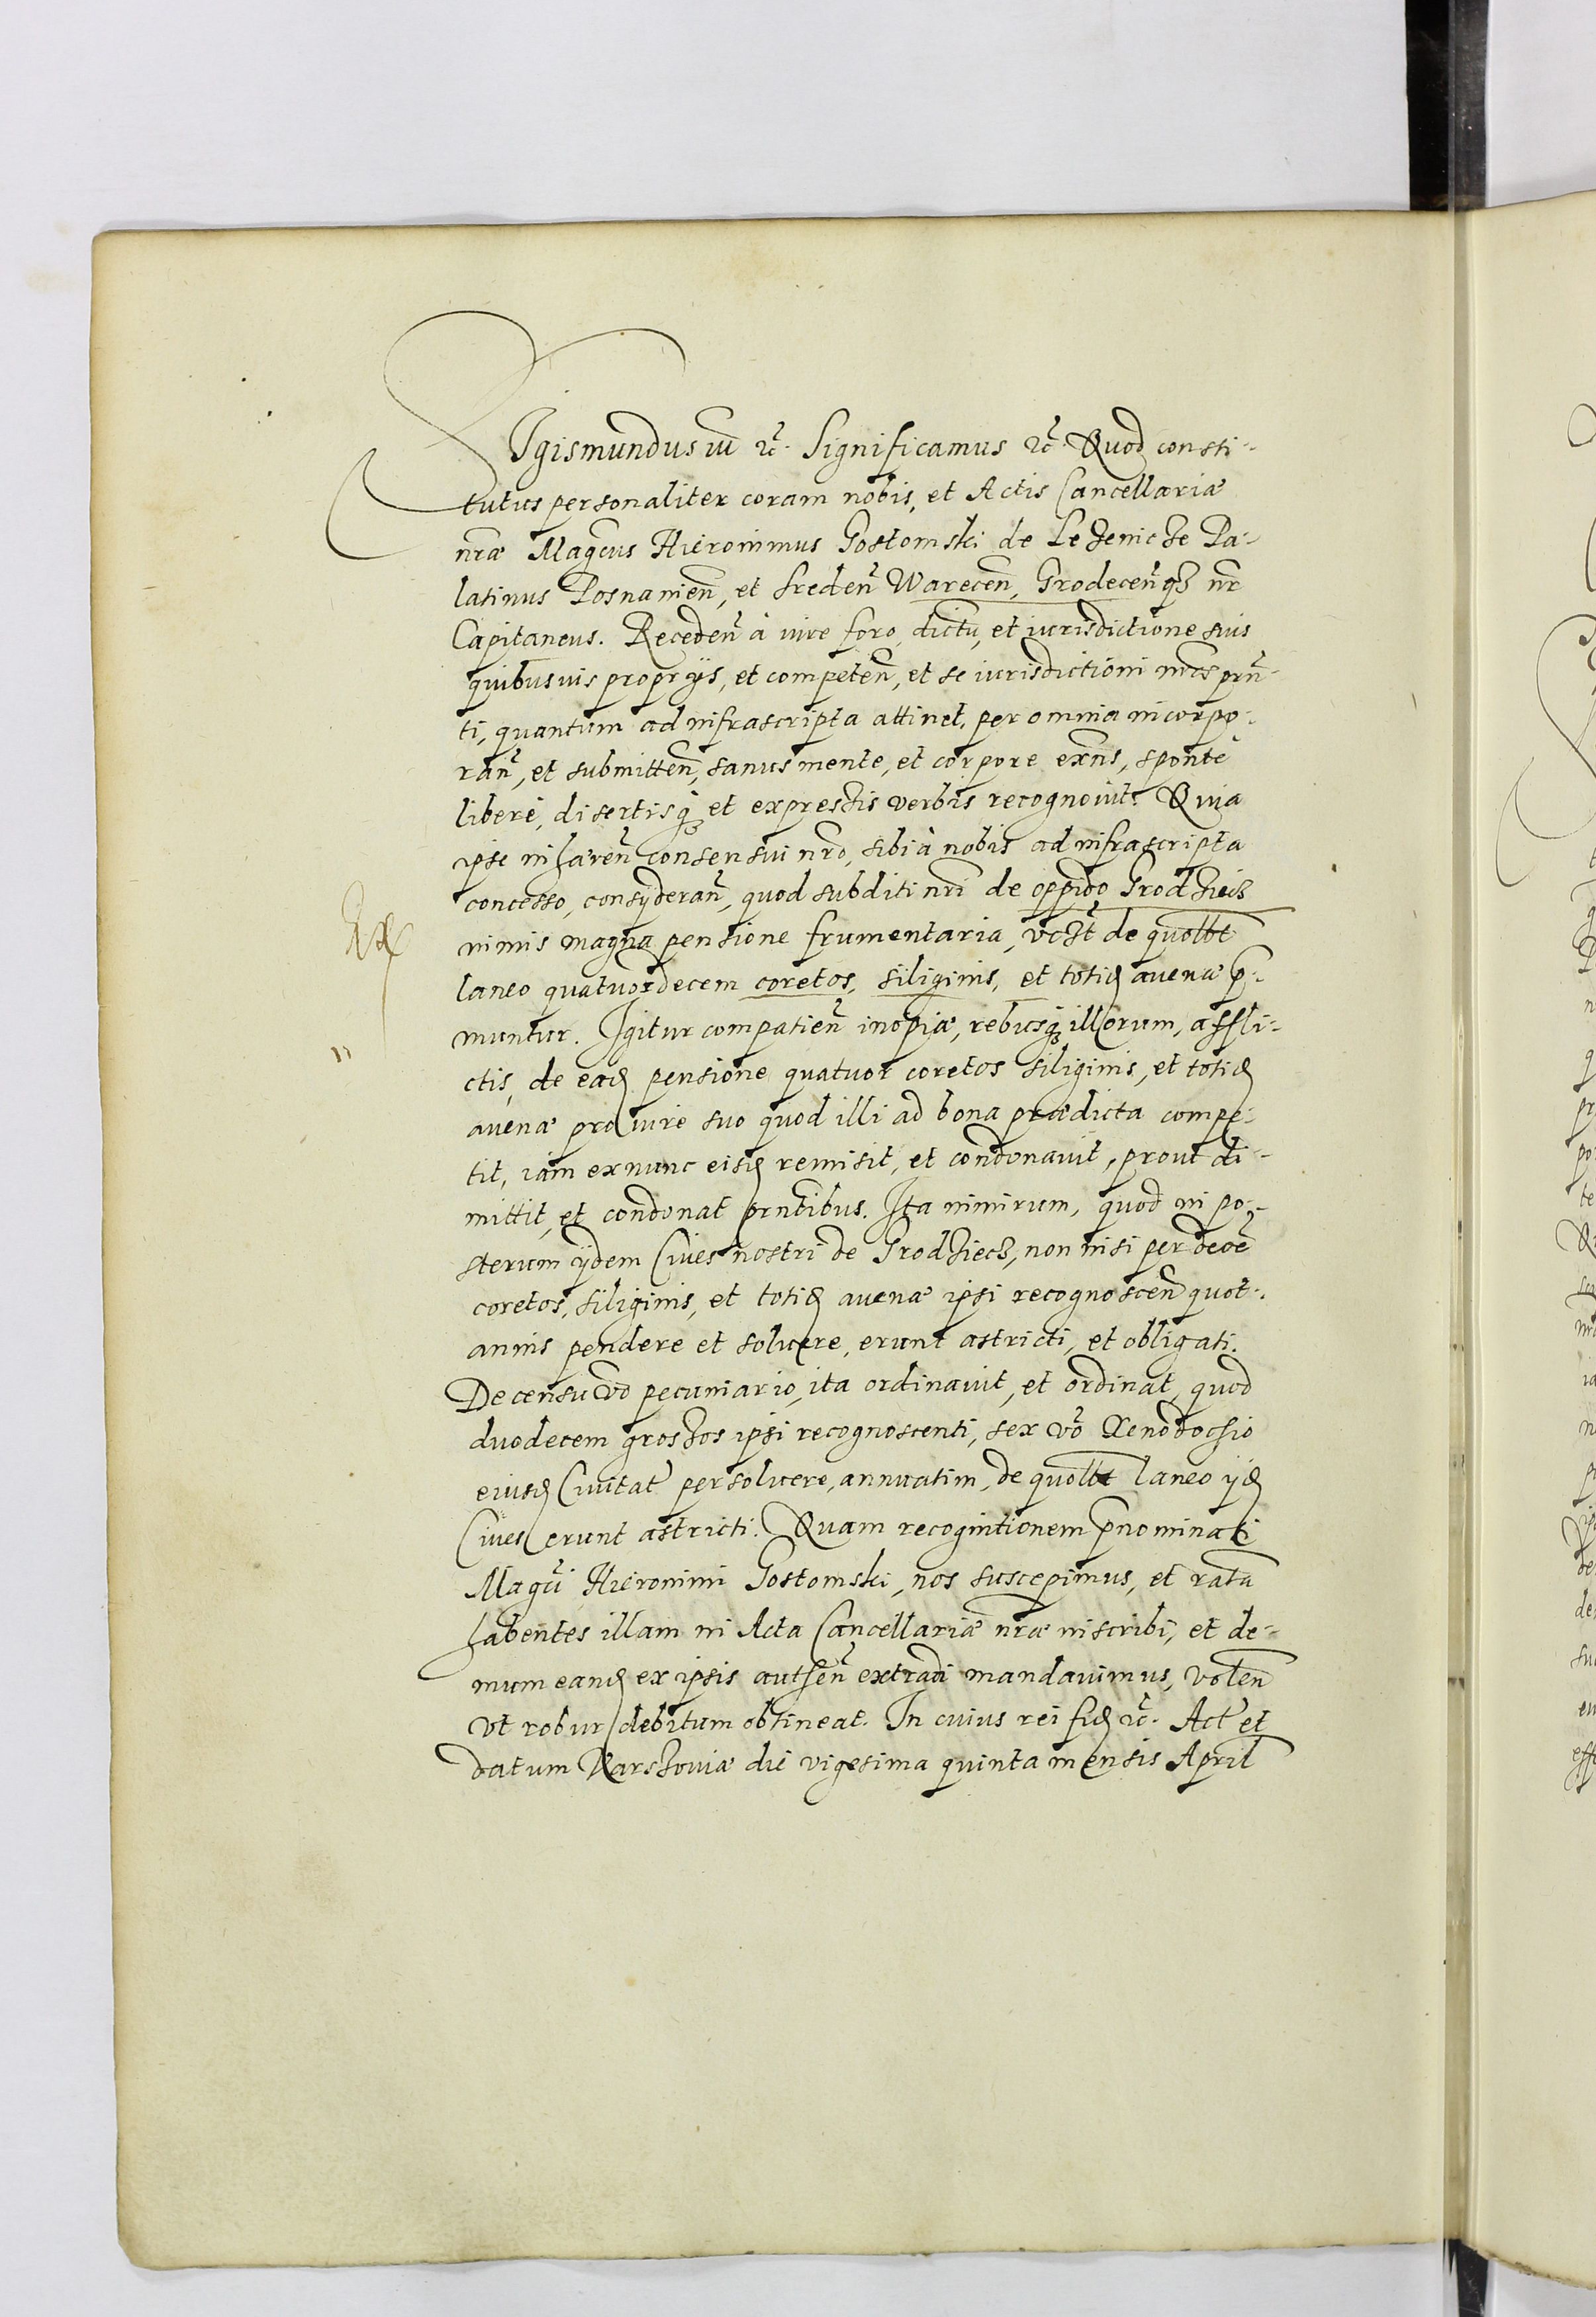 Sigismundus iii ꝛc̃. Significamus ꝛc̃. Quod consti-
tutus personaliter coram nobis, et Actis Cancellariæ
nr̃æ Magc̃us Hieronimus Gostomski de Lezenicze Pa-
latinus Posnanien̄, et Sreden̄ Warecen̄, Grodecen̄qȝ nr̄
Capitaneus. Receden̄ à iure foro, dictu, et iurisdictione suis
quibusuis proprijs, et competen̄, et se iurisdictioni nr̄æ prn̄-
ti, quantum ad infrascripta attinet, per omnia incorpo-
ran̄, et submitten̄, sanus mente, et corpore exn̄s, sponte
liberè, disertisqȝ et expressis verbis recognouit. Quia
ipse inhæren̄ consensui nr̄o, sibi à nobis ad infrascripta
concesso, consyderan̄, quod subditi nr̄i de oppido Grodziecz
nimis magna pensione frumentaria, vczt̃ de quolt̄
laneo quatuordecem coretos, siliginis, et totiꝺ auenæ p̄-
muntur. Igitur compatien̄ inopiæ, rebusqȝ illorum, affli-
ctis, de eaꝺ pensione quatuor coretos siliginis, et totiꝺ
auenæ pro iure suo quod illi ad bona prædicta compe-
tit, iam exnunc eisꝺ remisit, et condonauit, prout di-
mittit, et condonat prn̄tibus. Ita nimirum, quod in po-
sterum ijdem Ciues nostri de Grodziecz, non nisi per decē
coretos, siliginis, et totiꝺ auenæ ipsi recognoscen̄ quot-
annis pendere et soluere, erunt astricti, et obligati.
De censu vō pecuniario, ita ordinauit, et ordinat, quod
duodecem groszos ipsi recognoscenti, sex vō Xenodochio
eiusꝺ Ciuitat̃ persoluere, annuatim, de quolt̄ laneo ijꝺ
Ciues erunt astricti. Quam recognitionem p̄nominati
Magc̃i Hieronimi Gostomski, nos suscepimus, et ratā
habentes illam in Acta Cancellariæ nr̄æ inscribi, et de-
mum eanꝺ ex ipsis authen̄ extradi mandauimus, volen̄
vt robur debitum obtineat. In cuius rei fiꝺ ꝛc̃. Act̃ et
datum Varszouiæ die vigesima quinta mensis April̄